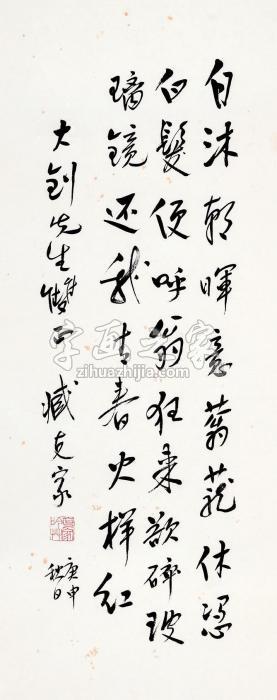 自沐朝晖意蓊茏休凭
白髮便呼翁狂来欲碎玻
璃镜还我青春火样红
大钊先生雙正臧克家
庚申
秋日
字画之家
zihuazhijia.com